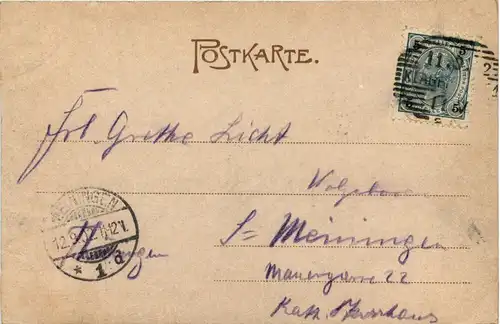 POSTKARTE.
5 5
11.
KLAGE
5
Frl Grethe Licht
Wolgeboren
S= Meiningen
Mauergasse 22
Kath. Pfarrhaus
MEININGEN
12.9. 11-12V.
* 1 d